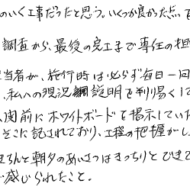 のいく工事だったと思う。いくつか良かった点を
調査から、最後の完工まで専任の担
当者が、施行時は必ず毎日一回
、私への現況説明を判り易くして
入関前にホワイトボードを掲示していた
そこに記されており、工程の把握がし
ろんと朝夕のあいさつはきっちりとできて
が感じられたこと。